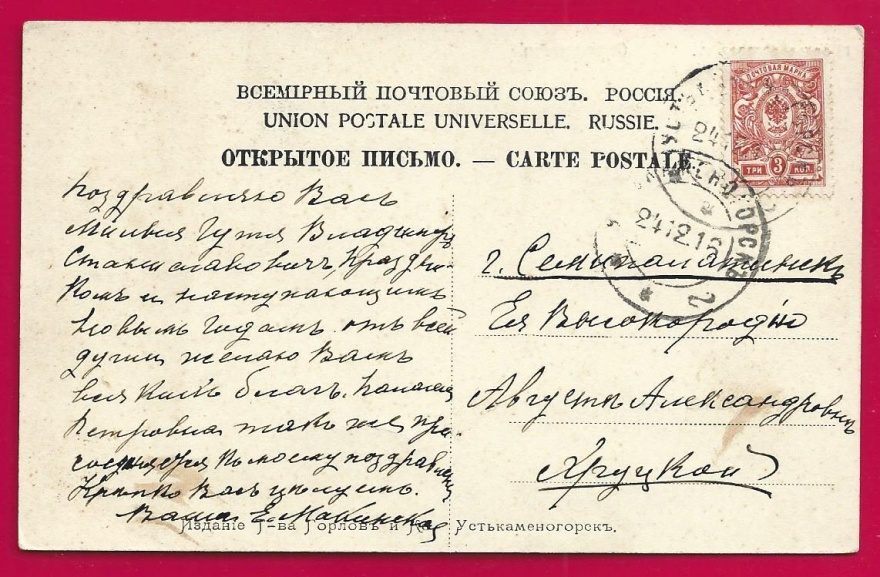 ВСЕМІРНЫЙ ПОЧТОВЫЙ СОЮЗЪ. РОССІЯ
UNION POSTALE UNIVERSELLE. RUSSIE.
ОТКРЫТОЕ ПИСЬМО. — CARTE POSTALE
ПОЧТОВАЯ МАРКА
ТРИ 3 КОП.
24.12.16
2
Поздравляю Васъ
Милыя Гутя Владимиръ
Станиславовичъ, Праздни-
комъ и наступающимъ
Новымъ Годомъ. отъ всей
души желаю Вамъ
всякихъ благъ.
Петровна также при-
соединяется къ моему поздравлен
Крѣпко Васъ цѣлуемъ.
Ваша Е.
г. Семипалатинскъ
Ея Высокородію
Августѣ Александровнѣ
Хруцкой
Изданіе Т-ва Горловъ и Устькаменогорскъ.